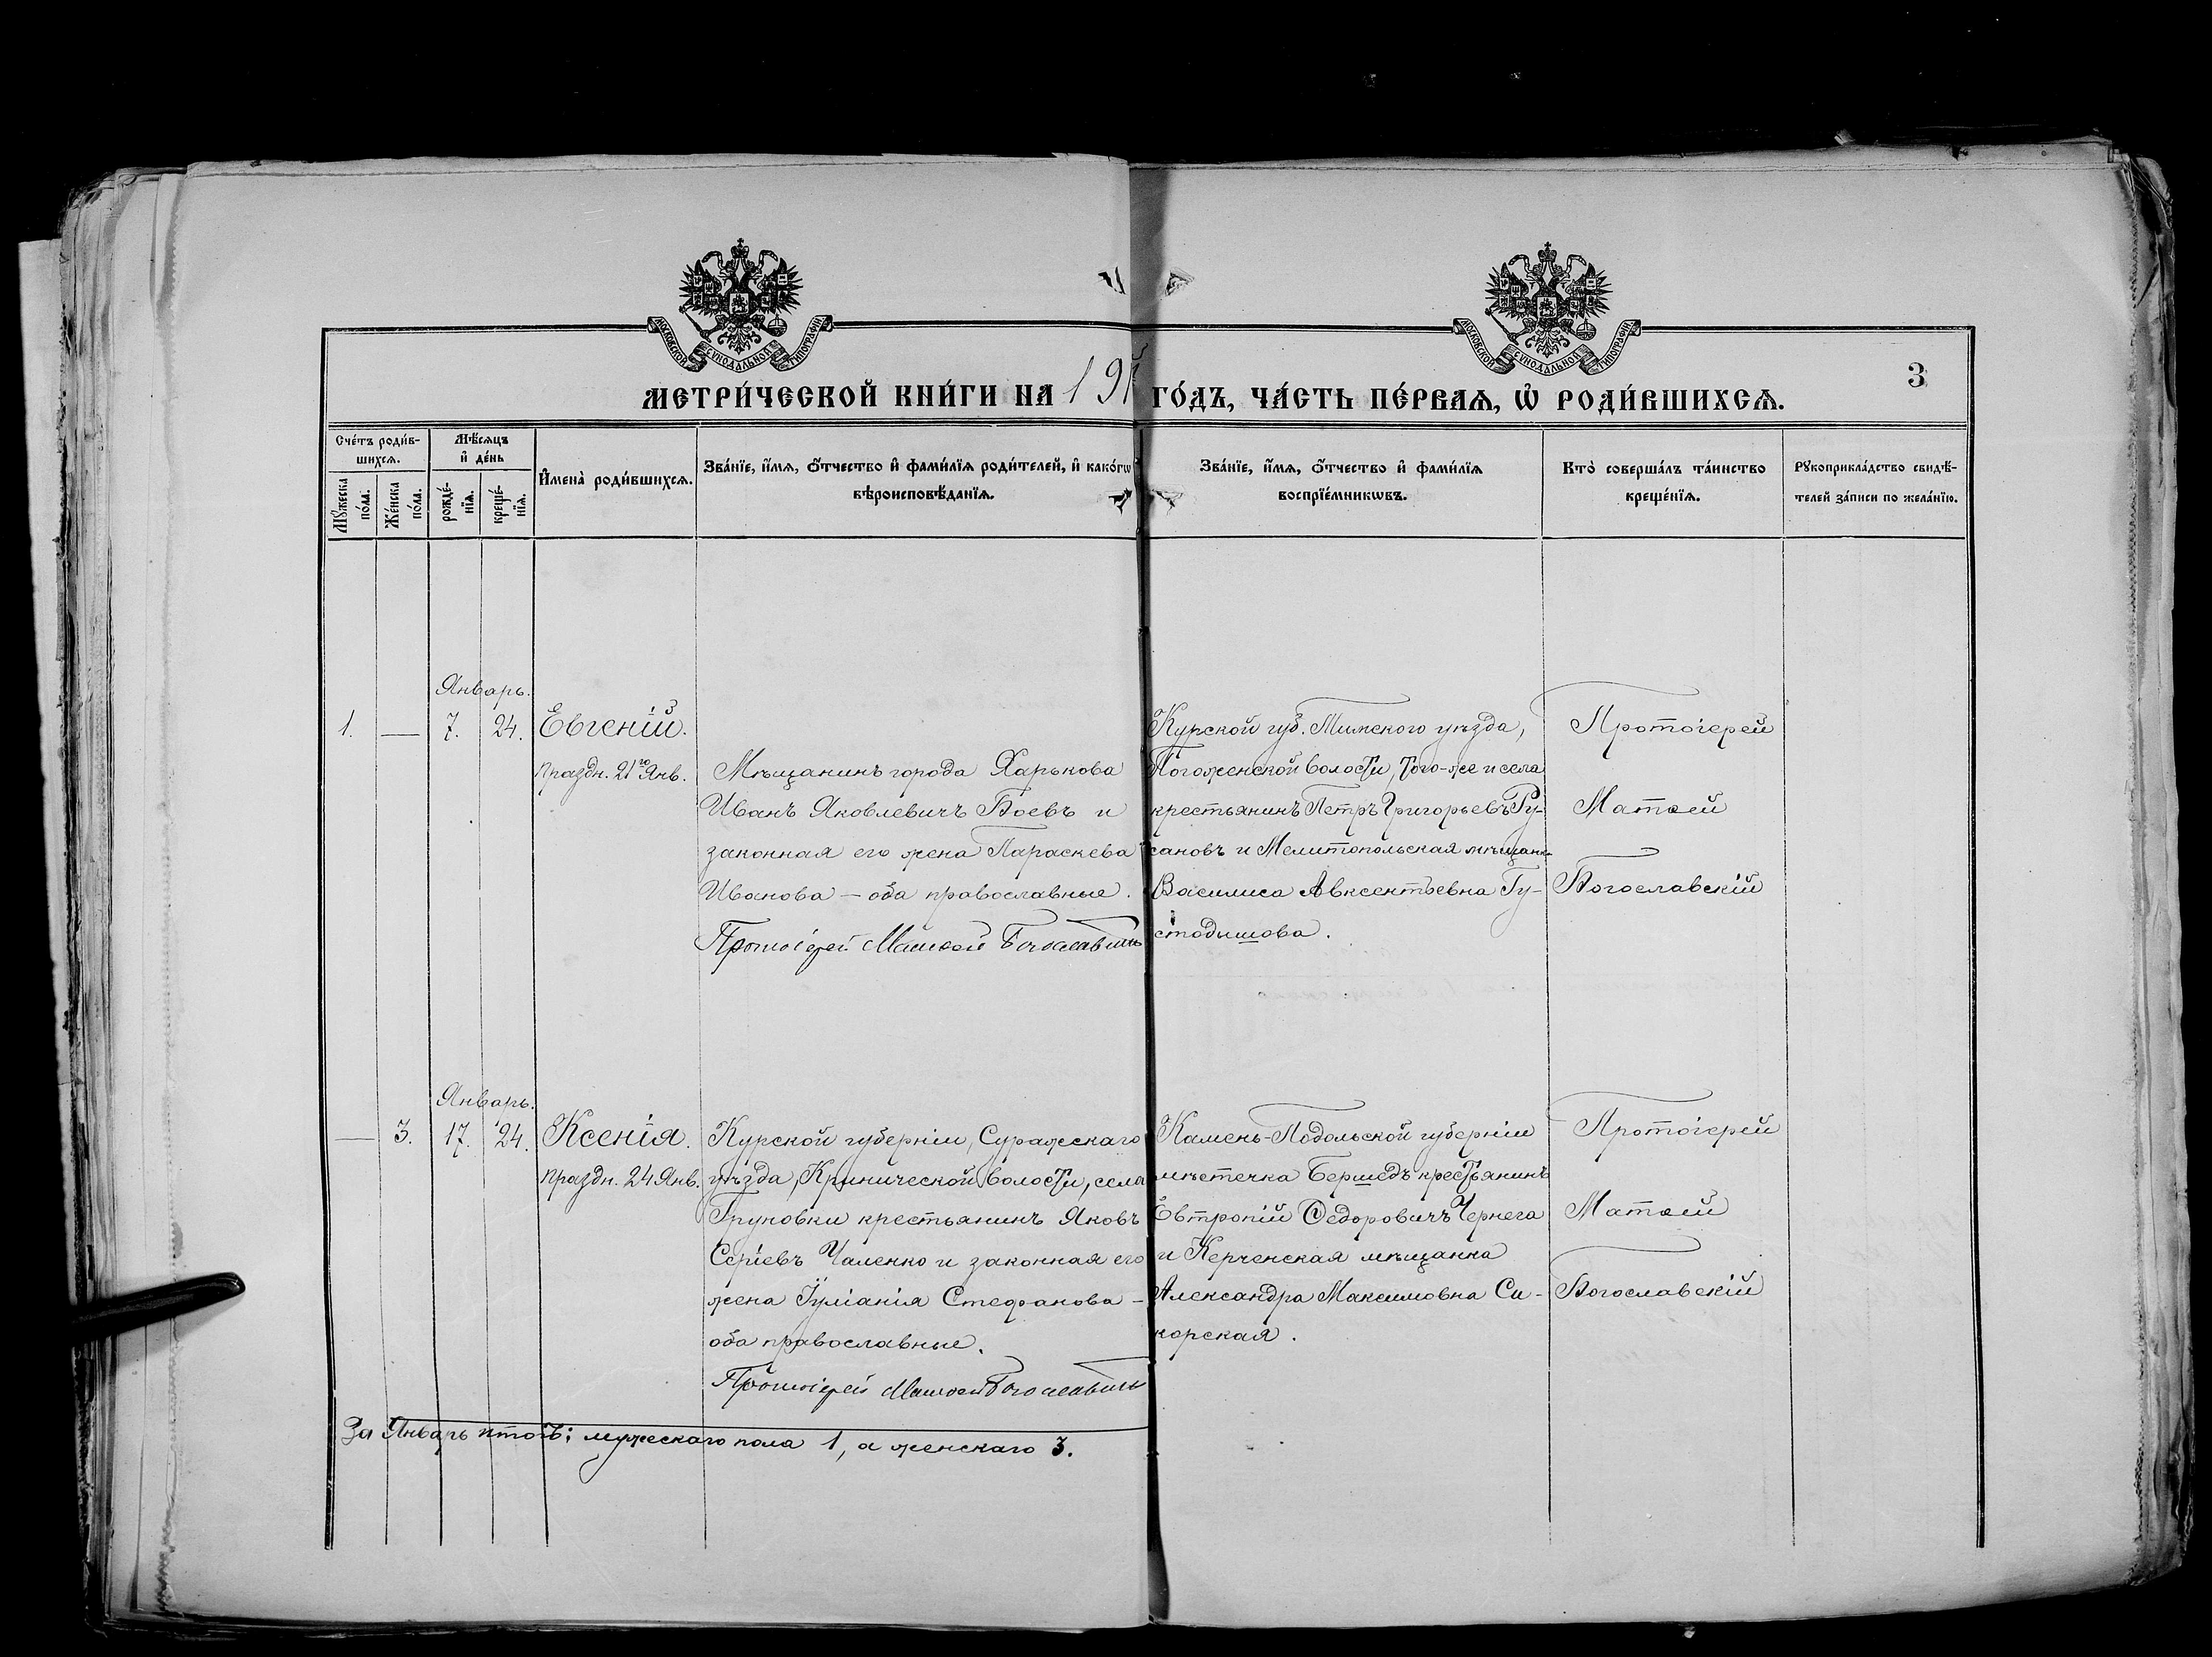 МОСКОВСКОЙ СѴНОДАЛЬНОЙ ТИПОГРАФІИ
МОСКОВСКОЙ СѴНОДАЛЬНОЙ ТИПОГРАФІИ
3
МЕТРИ́ЧЕСКОЙ КНИ́ГИ НА 191 ГО́ДЪ, ЧА́СТЬ ПЕ́РВАѦ, Ѡ҆ РОДИ́ВШИХСѦ.
Сче́тъ роди́в-
шихсѧ.
Мꙋ́жеска по́ла.
Же́нска по́ла.
Мѣ́сѧцъ
и҆ де́нь
рожде́-
нїѧ.
креще́-
нїѧ.
И҆мена̀ роди́вшихсѧ.
Зва́нїе, и҆́мѧ, ѻ҆́тчество и҆ фами́лїѧ роди́телей, и҆ како́гѡ
вѣроисповѣ́данїѧ.
Зва́нїе, и҆́мѧ, ѻ҆́тчество и҆ фами́лїѧ
воспрїе́мникѡвъ.
Кто̀ соверша́лъ та́инство
креще́нїѧ.
Рꙋкоприкла́дство свидѣ́-
телей за́писи по жела́нїю.
Январь.
1. — 7. 24. Евгеній.
Праздн. 21го Янв.
Мѣщанинъ города Харькова
Иванъ Яковлевичъ Боевъ и
законная его жена Параскева
Иванова — оба православные.
Протоіерей Матѳей Богославскій
Курской губ. Тимского уѣзда,
Погоженской волости, того-же и села
крестьянинъ Петръ Григорьевъ Ру-
сановъ и Мелитопольская мѣщанка
Василиса Авксентьевна Гу-
стодымова.
Протоіерей
Матѳей
Богославскій
Январь.
— 3. 17. 24. Ксенія.
Праздн. 24 Янв.
Курской губерніи, Суражскаго
уѣзда, Кринической волости, села
крестьянинъ Яковъ
Сергіевъ Чаленко и законная его
жена Іуліанія Стефанова —
оба православные.
Протоіерей Матѳей Богославскій
Камень-Подольской губерніи
мѣстечка Бершедъ крестьянинъ
Евтропій Ѳедоровичъ Чернега
и Керченская мѣщанка
Александра Максимовна Си-
корская.
Протоіерей
Матѳей
Богославскій
За Январь итогъ: мужескаго пола 1, а женскаго 3.